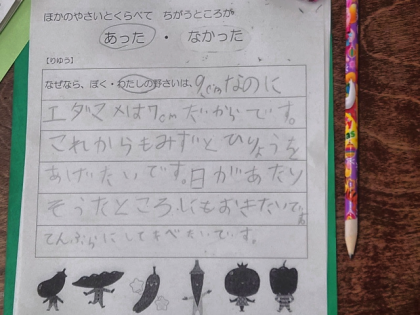 ほかのやさいとくらべて ちがうところが
あった ・ なかった
【りゆう】
なぜなら、ぼく・わたしの野さいは、9cmなのに
エダマメは7cmだからです。
これからもみずとひりょうを
あげたいです。日があたり
そうたところにもおきたいです。
てんぷらにしてたべたいです。